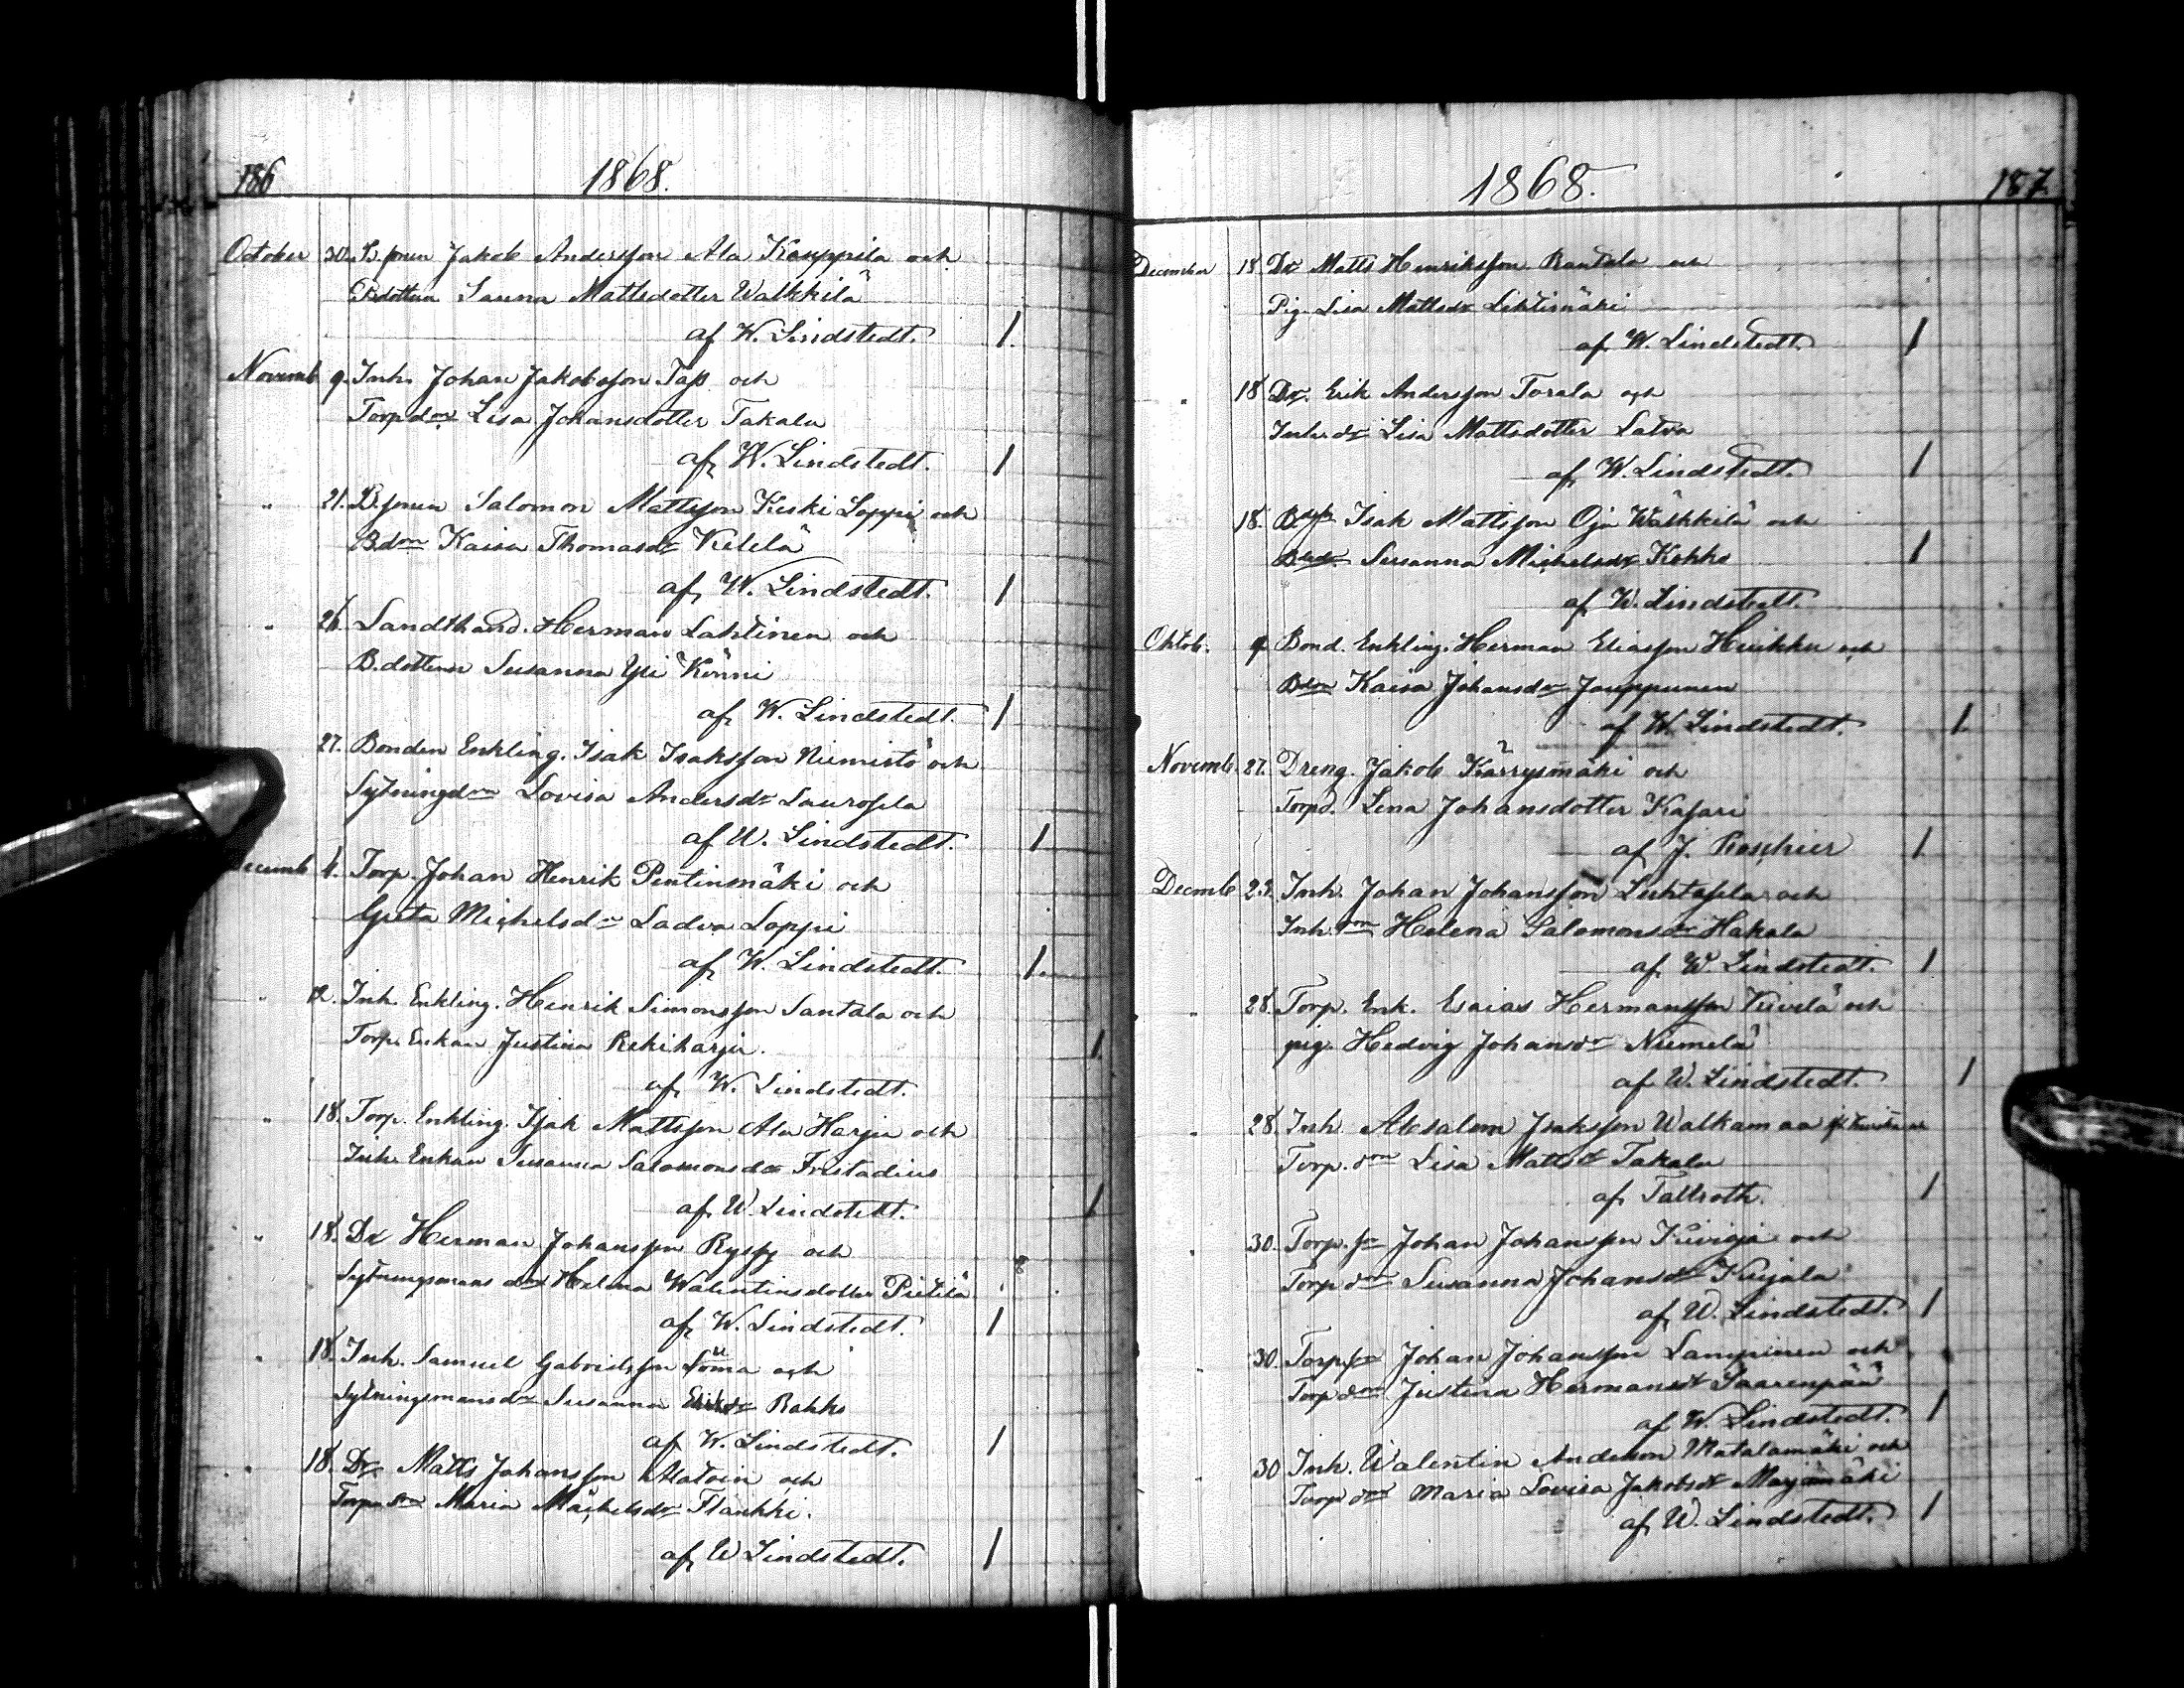 186 1868.
October 30. B.sonen Jakob Andersson Ala Kauppila och
B.dottern Sanna Mattsdotter Walkkilä
af W. Lindstedt. 1.
Novemb 9. Inh. Johan Jakobsson Tass och
Torpdon Lisa Johansdotter Takalu
af W. Lindstedt. 1
" 21. B.sonen Salomon Mattsson Keski Loppi och
B.don Kaisa Thomasdr Ketelä
af W. Lindstedt. 1
" 26. Landthand. Herman Lahtinen och
B.dottern Susanna Yli Könni
af W. Lindstedt. 1
27. Bonden Enkling. Isak Isaksson Niemistö och
Sytningdon Lovisa Andersdr Laurosela
af W. Lindstedt. 1
Decemb 4. Torp. Johan Henrik Pentinmäki och
Greta Michelsdr Ladva Loppi
af W. Lindstedt. 1.
" 12. Inh. Enkling. Henrik Simonsson Santala och
Torp. Enkan Justina Rekiharju. 1
af W. Lindstedt.
" 18. Torp. Enkling. Isak Mattsson Ala Harju och
Inh. Enkan Susanna Salomonsdr Fristadius
af W. Lindstedt. 1
" 18. Dr Herman Johansson Ryssy och
Sytningsmans don Helena Walentinsdotter Pietilä
af W. Lindstedt. 1
" 18. Inh. Samuel Gabrielsson Löma och
Sytningsmansdr Susanna Eriksdr Rahko
af W. Lindstedt. 1
" 18. Dr Matts Johansson Alatoin och
Torpdon Maria Michelsdr Flankki.
af W Lindstedt. 1
1868. 187
December 18 Dr Matts Henriksson Rantala och
Pig. Lisa Mattsdr Lehtimäki
af W. Lindstedt. 1
" 18 Dr. Erik Andersson Torala och
Inh. dr Lisa Mattsdotter Latva
af W. Lindstedt. 1
18. Isak Mattsson Oja Wälkkilä och
Susanna Michelsdr Kokko 1
af W. Lindstedt.
Oktob. 9 Bond. Enkling. Herman Eliasson Huikku och
Bdon Kaisa Johansdr Jauppunen
af W. Lindstedt. 1.
Novemb. 27. Dreng. Jakob Kärrysmäki och
Torpd. Lena Johansdotter Kasari
af J. Roschier 1
Decmb 23. Inh. Johan Johansson Luhtasela och
Inh.don Helena Salomonsdr Hakala
af W. Lindstedt. 1
" 28. Torp. Enk. Esaias Hermansson Kivelä och
pig. Hedvig Johansdr Niemelä
af W. Lindstedt. 1
" 28. Inh. Absalom Isaksson Walkamaa
Torp.don Lisa Mattsdr Takalu
af Tallroth. 1
" 30. Torp.sn Johan Johansson Kivioja och
Torpdon Susanna Johansdr Kujala
af W. Lindstedt. 1
" 30. Torp.sn Johan Johansson Lampinen och
Torpdon Justina Hermansdr Saarenpää
af W. Lindstedt. 1
" 30 Inh. Walentin Anderson Matalamäki och
Torpdon Maria Lovisa Jakobsdr Mayamäki
af W. Lindstedt. 1